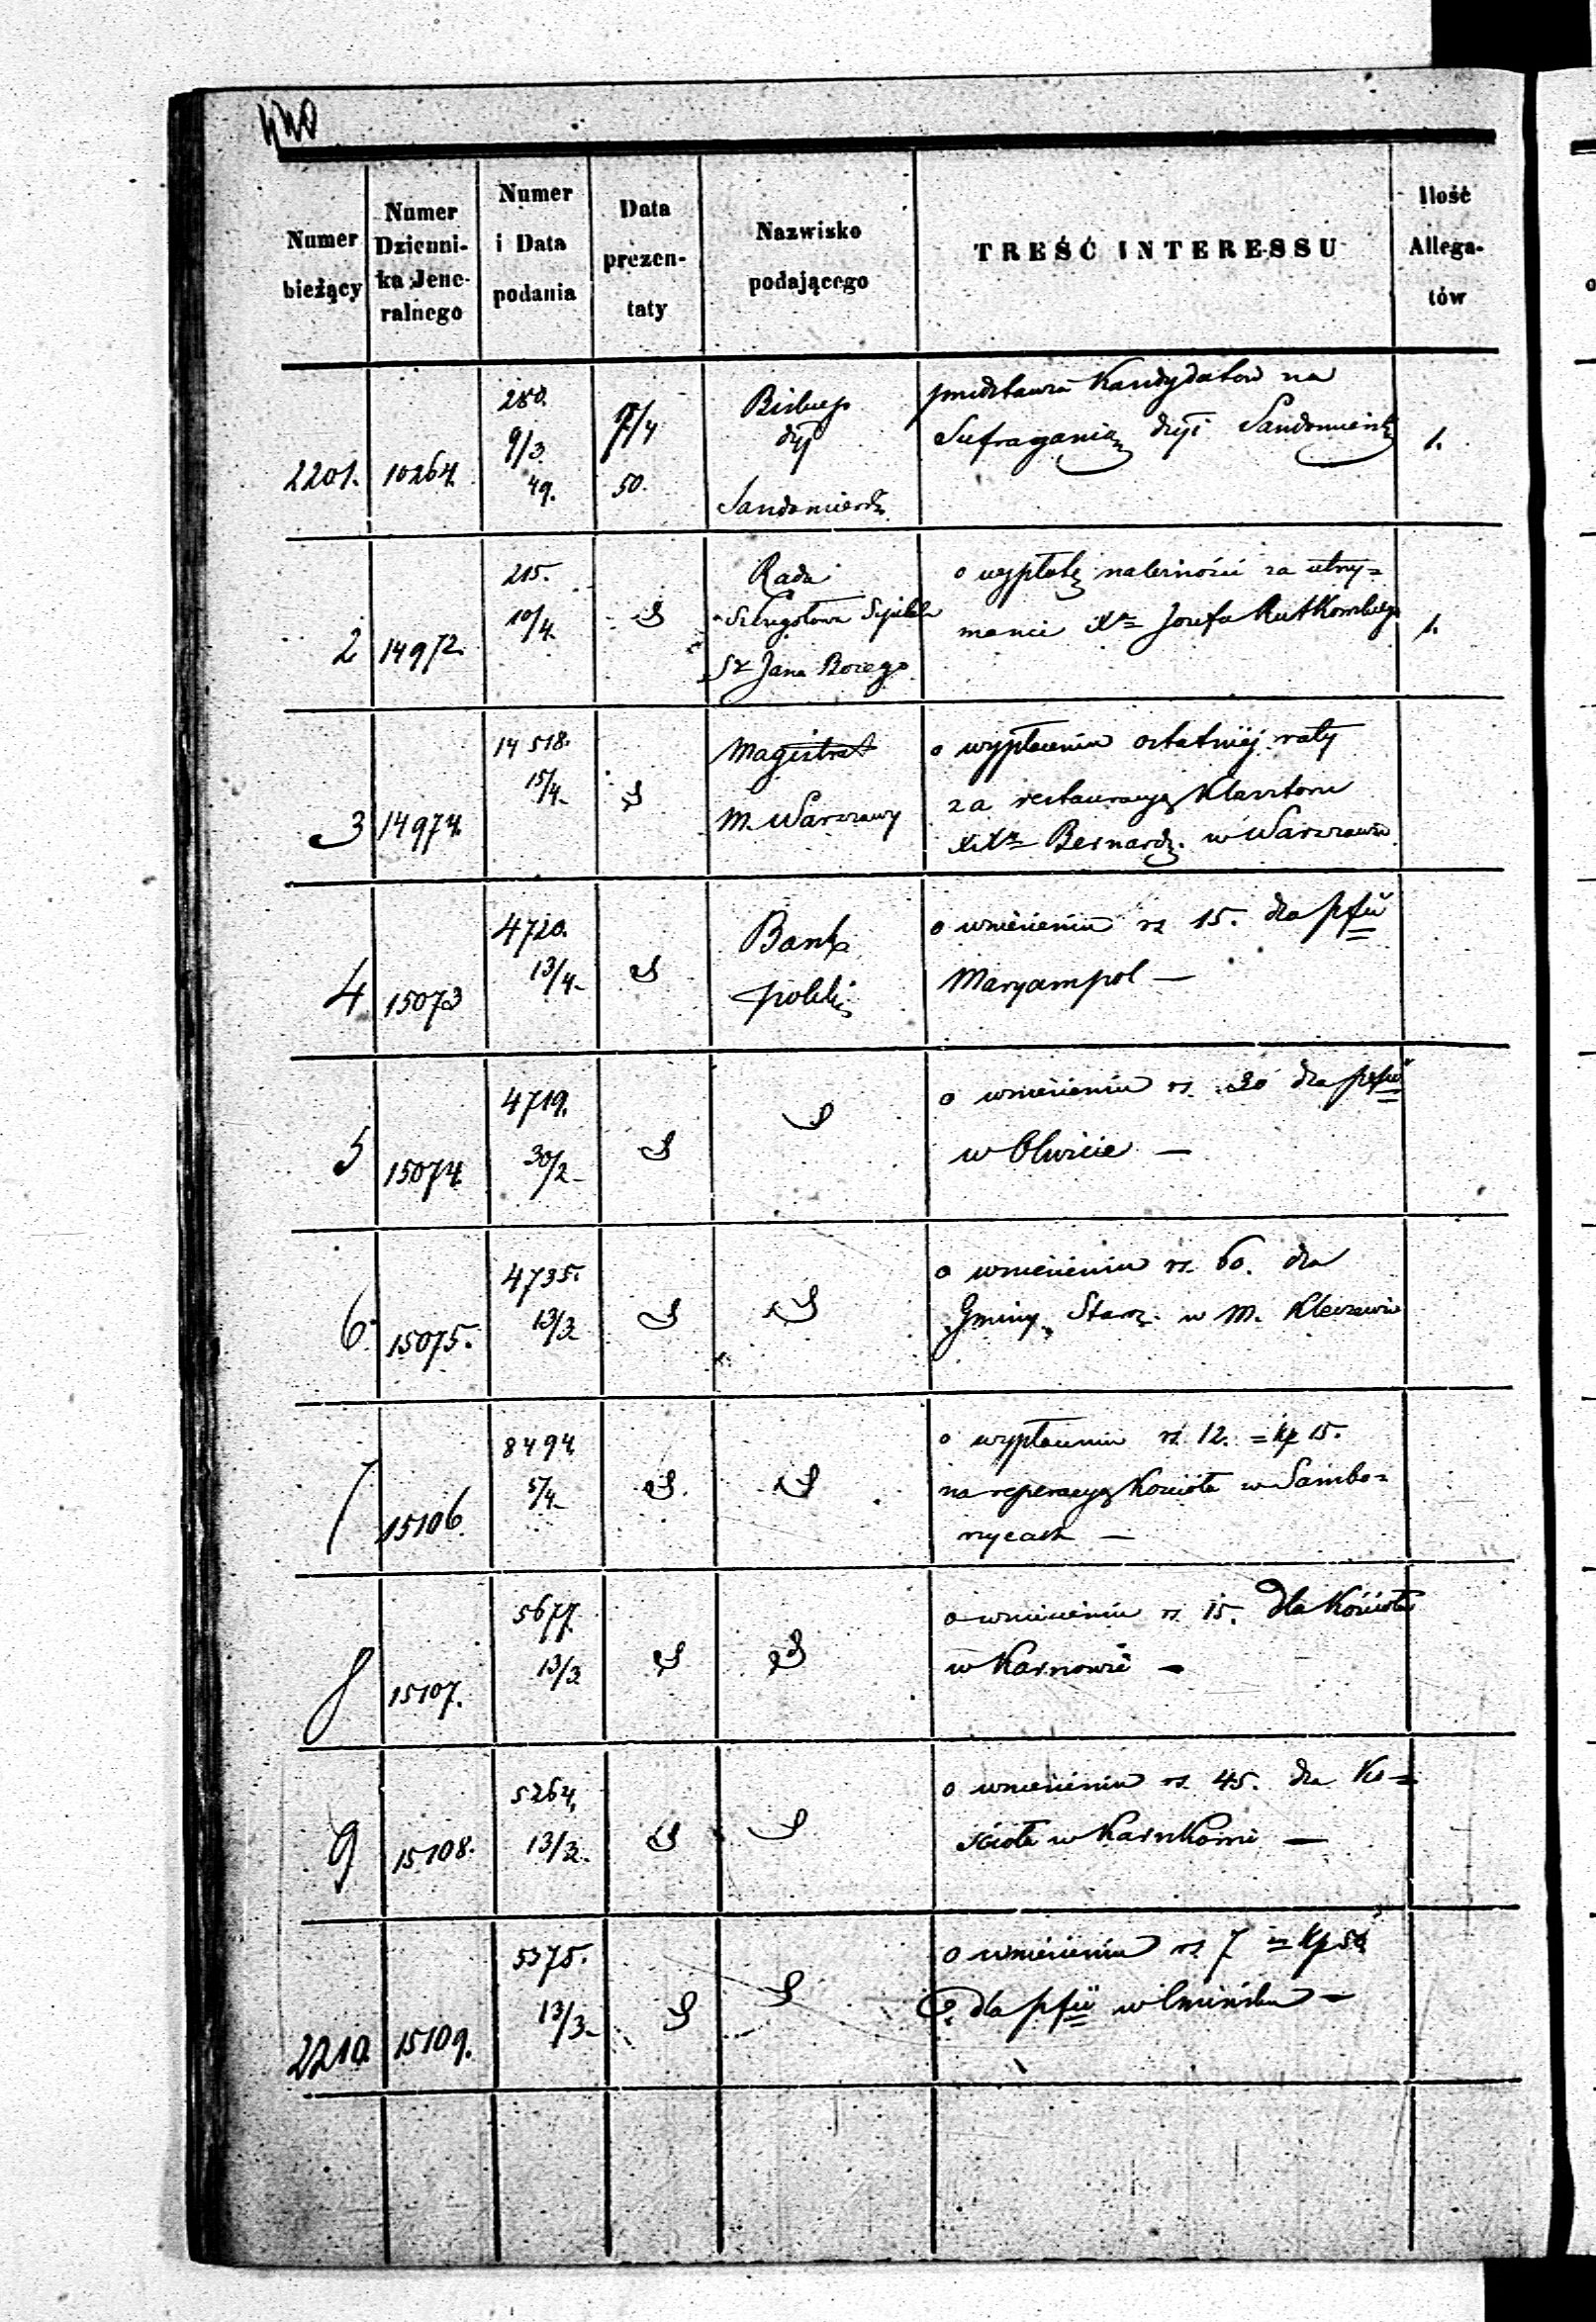 440
Numer
bieżący
Numer
Dzienni-
ka Jene-
ralnego
Numer
i Data
podania
Data
prezen-
taty
Nazwisko
podającego
TREŚĆ INTERESSU
Ilość
Allega-
tów
2201.
10264.
280.
9/3.
49.
17/4
50.
Biskup
dyi
Sandomiersk
przedstawia Kandydatów na
Sufraganią dyi Sandomiersk
1.
2
14972.
215.
10/4.
Rada
Szczegółowa Szpitala
Sgo Jana Bożego
o wypłatę należności za utrzy=
manie Xa Jozefa Rutkowskiego
1.
3
14974.
14518.
15/4.
Magistrat
M. Warszawy
o wypłacenie ostatniej raty
za restauracyą Klasztoru
XXn Bernardz. w Warszawie
4
15073
4720.
13/4.
Bank
polski
o wniesieniu rs. 15. dla pfii
Maryampol —
5
15074.
4719.
30/2.
o wniesieniu rs. 30 dla
w —
6.
15075.
4735.
13/3.
o wniesieniu rs. 60. dla
Gminy Staroz. w M. Kleczewie
7
15106.
8494
5/4.
o wypłacenie rs. 12. = kp 15.
na reperacyą Kościoła w Sambo=
rzycach —
8
15107.
5677.
13/3
o wniesieniu rs. 15. dla Kościoła
w Karnowie —
9
15108.
5264,
13/3.
o wniesieniu rs. 45. dla Ko=
ścioła w Karnkowie —
2210
15109.
5375.
13/3.
o wniesieniu rs. 7 = kp 50
dla pfii w —